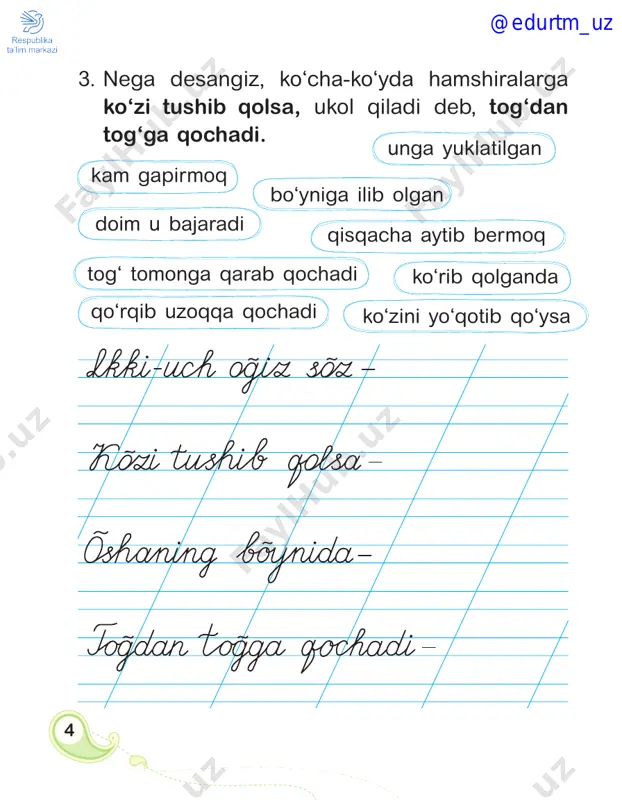 Respublika
ta'lim markazi
@edurtm_uz
3. Nega desangiz, ko‘cha-ko‘yda hamshiralarga
ko‘zi tushib qolsa, ukol qiladi deb, tog‘dan
tog‘ga qochadi.
unga yuklatilgan
kam gapirmoq
bo‘yniga ilib olgan
doim u bajaradi
qisqacha aytib bermoq
tog‘ tomonga qarab qochadi
ko‘rib qolganda
qo‘rqib uzoqqa qochadi
ko‘zini yo‘qotib qo‘ysa
Ikki-uch og̃iz sõz –
Kõzi tushib qolsa –
Õshaning bõynida –
Tog̃dan tog̃ga qochadi –
4
FaylHub.uz
FaylHub.uz
FaylHub.uz
b.uz
uz
uz